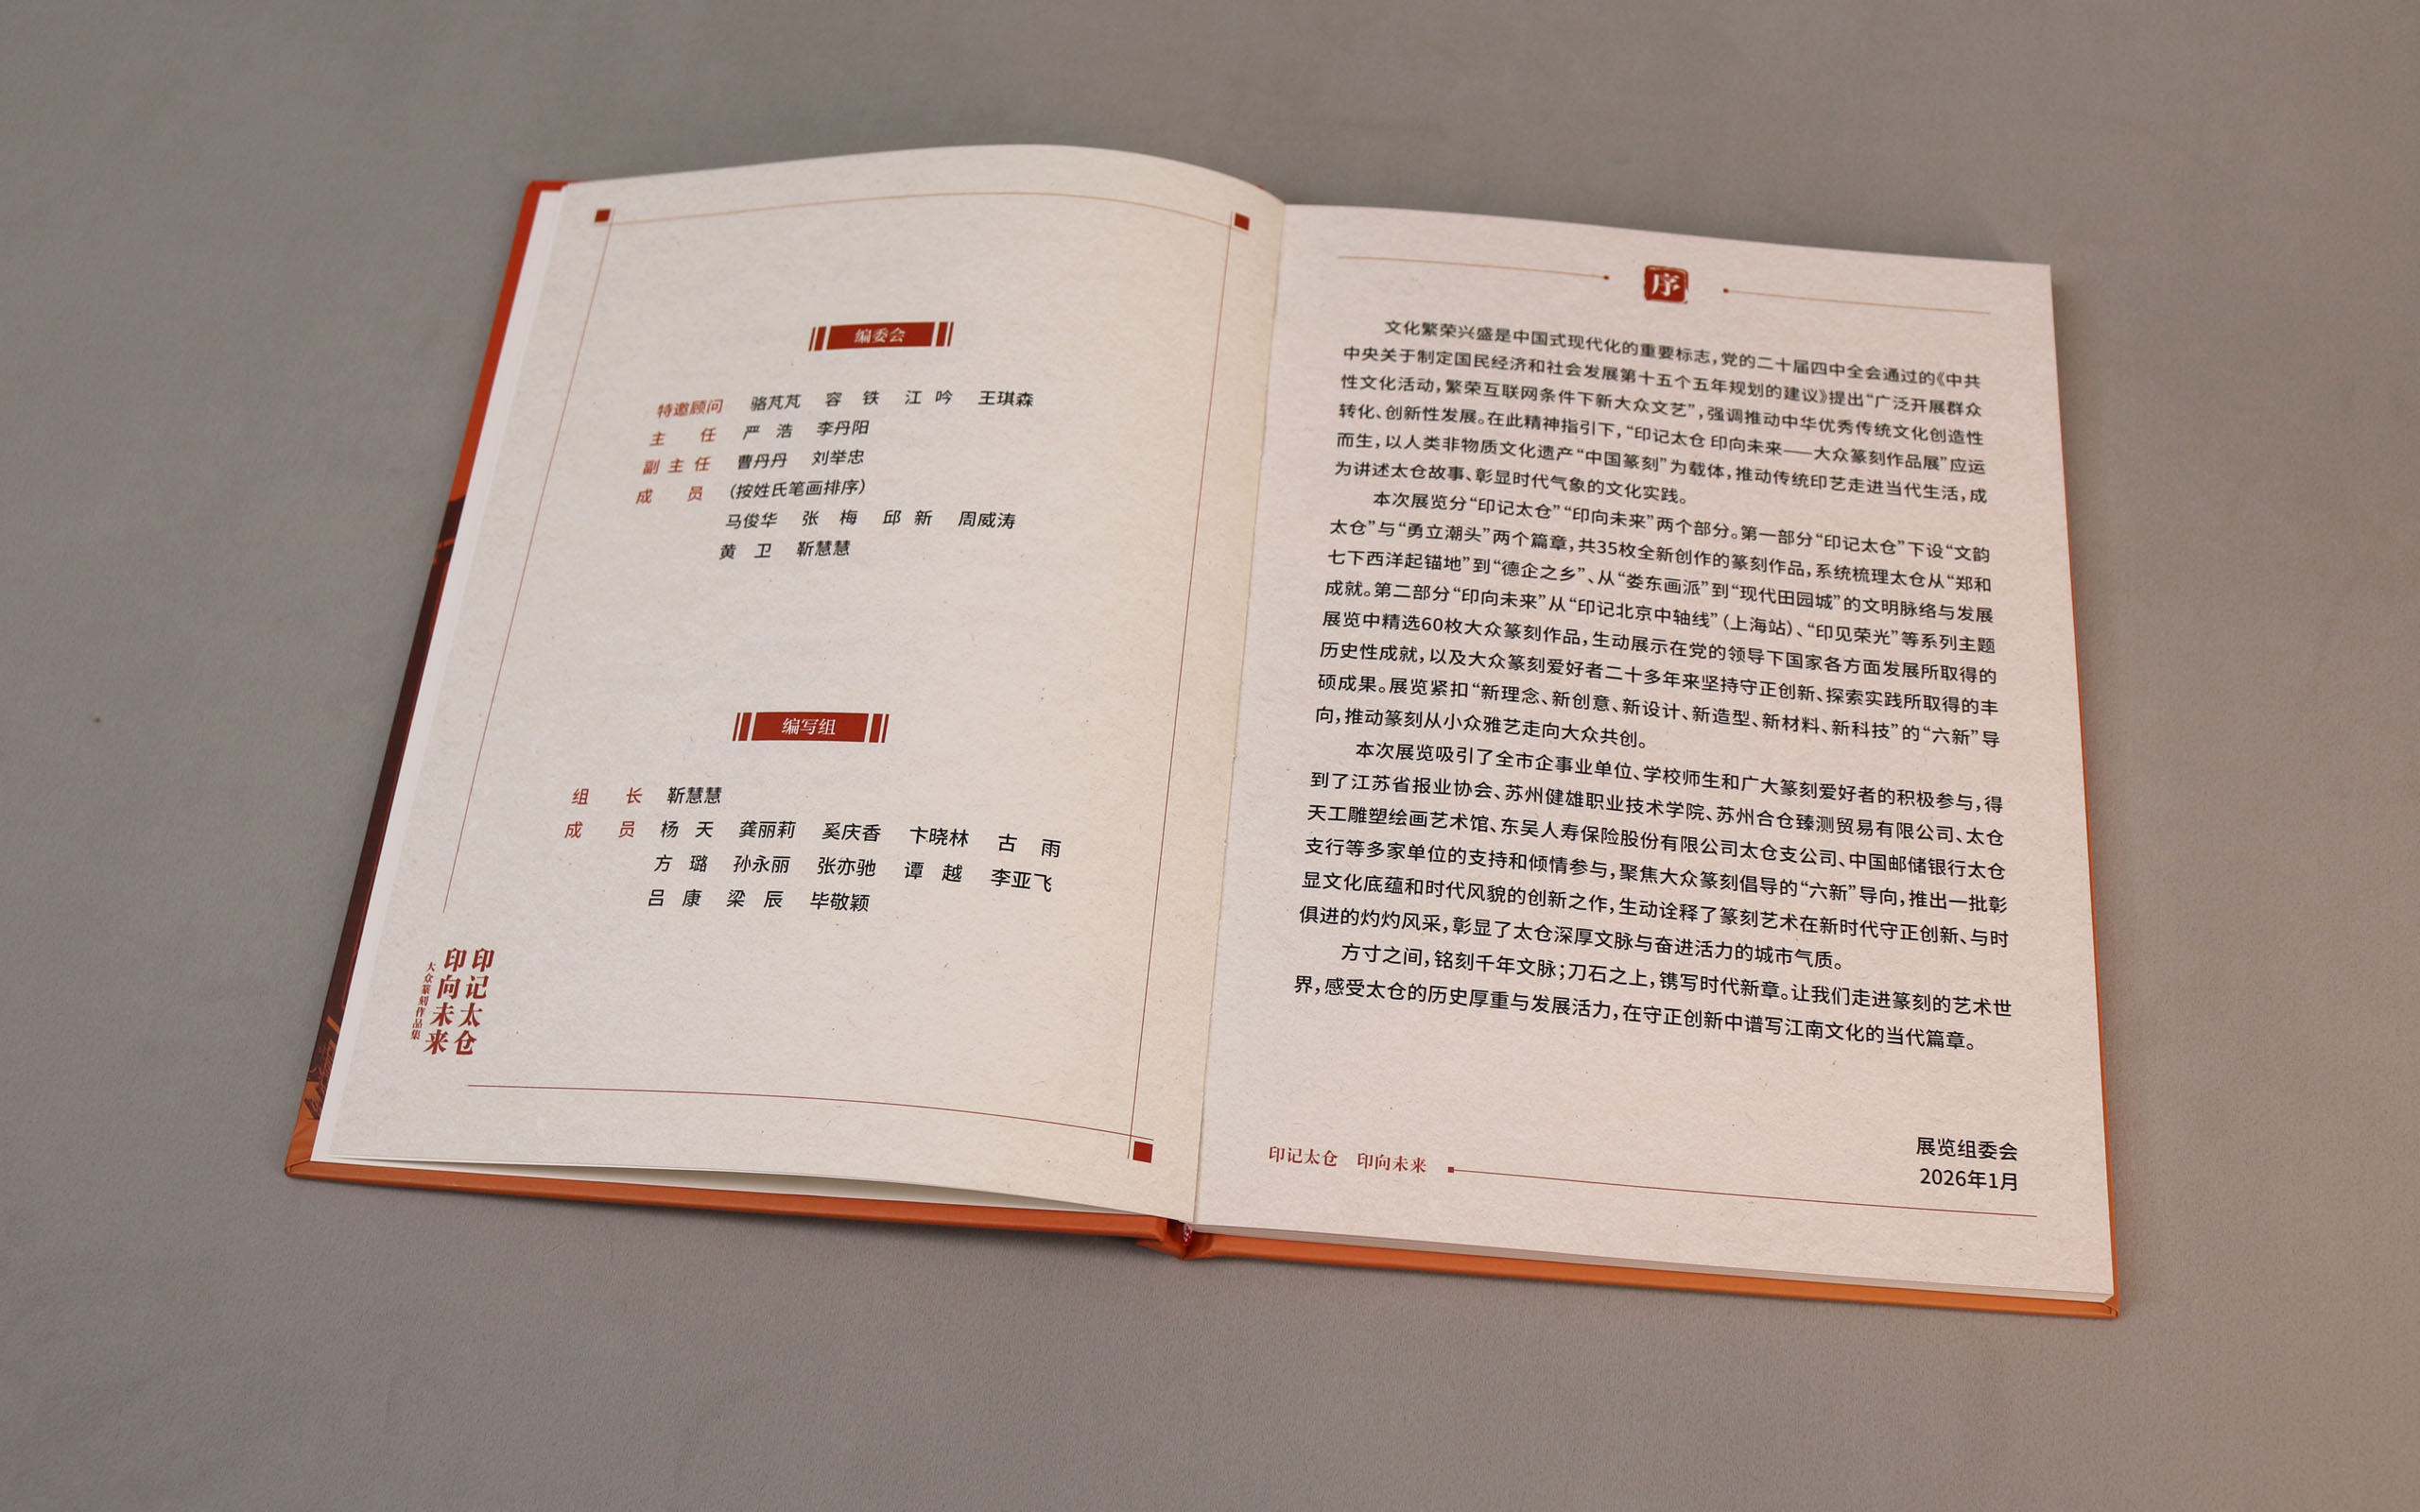 编委会
特邀顾问 骆芃芃 容 铁 江 吟 王琪森
主 任 严 浩 李丹阳
副主任 曹丹丹 刘举忠
成 员 （按姓氏笔画排序）
马俊华 张 梅 邱 新 周威涛
黄 卫 靳慧慧
编写组
组 长 靳慧慧
成 员 杨 天 龚丽莉 奚庆香 卞晓林 古 雨
方 璐 孙永丽 张亦驰 谭 越 李亚飞
吕 康 梁 辰 毕敬颖
印记太仓
印向未来
大众篆刻作品集
序
文化繁荣兴盛是中国式现代化的重要标志，党的二十届四中全会通过的《中共
中央关于制定国民经济和社会发展第十五个五年规划的建议》提出“广泛开展群众
性文化活动，繁荣互联网条件下新大众文艺”，强调推动中华优秀传统文化创造性
转化、创新性发展。在此精神指引下，“印记太仓 印向未来——大众篆刻作品展”应运
而生，以人类非物质文化遗产“中国篆刻”为载体，推动传统印艺走进当代生活，成
为讲述太仓故事、彰显时代气象的文化实践。
本次展览分“印记太仓”“印向未来”两个部分。第一部分“印记太仓”下设“文韵
太仓”与“勇立潮头”两个篇章，共35枚全新创作的篆刻作品，系统梳理太仓从“郑和
七下西洋起锚地”到“德企之乡”、从“娄东画派”到“现代田园城”的文明脉络与发展
成就。第二部分“印向未来”从“印记北京中轴线”（上海站）、“印见荣光”等系列主题
展览中精选60枚大众篆刻作品，生动展示在党的领导下国家各方面发展所取得的
历史性成就，以及大众篆刻爱好者二十多年来坚持守正创新、探索实践所取得的丰
硕成果。展览紧扣“新理念、新创意、新设计、新造型、新材料、新科技”的“六新”导
向，推动篆刻从小众雅艺走向大众共创。
本次展览吸引了全市企事业单位、学校师生和广大篆刻爱好者的积极参与，得
到了江苏省报业协会、苏州健雄职业技术学院、苏州合仓臻测贸易有限公司、太仓
天工雕塑绘画艺术馆、东吴人寿保险股份有限公司太仓支公司、中国邮储银行太仓
支行等多家单位的支持和倾情参与，聚焦大众篆刻倡导的“六新”导向，推出一批彰
显文化底蕴和时代风貌的创新之作，生动诠释了篆刻艺术在新时代守正创新、与时
俱进的灼灼风采，彰显了太仓深厚文脉与奋进活力的城市气质。
方寸之间，铭刻千年文脉；刀石之上，镌写时代新章。让我们走进篆刻的艺术世
界，感受太仓的历史厚重与发展活力，在守正创新中谱写江南文化的当代篇章。
展览组委会
2026年1月
印记太仓 印向未来